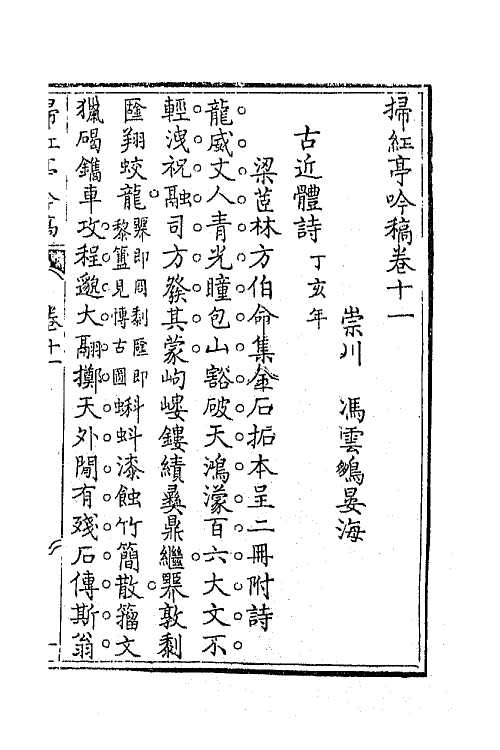 掃紅亭吟稿卷十一
崇川　馮雲鵷晏海
古近體詩 丁亥年
梁茝林方伯命集金石拓本呈二冊附詩
龍威丈人青光瞳包山豁破天鴻濛百六大文不
輕洩祝融司方發其蒙岣嶁鏤績彝鼎繼𦉢敦剩
匯翔蛟龍 𦉢即周剩匯即黎簠見博古圖 蝌蚪漆蝕竹簡散籀文
獵碣鐫車攻程邈大翮擲天外閒有殘石傳斯翁
掃紅亭吟稿 卷十一